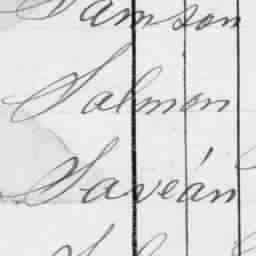 Samson
Salmon
Saveán